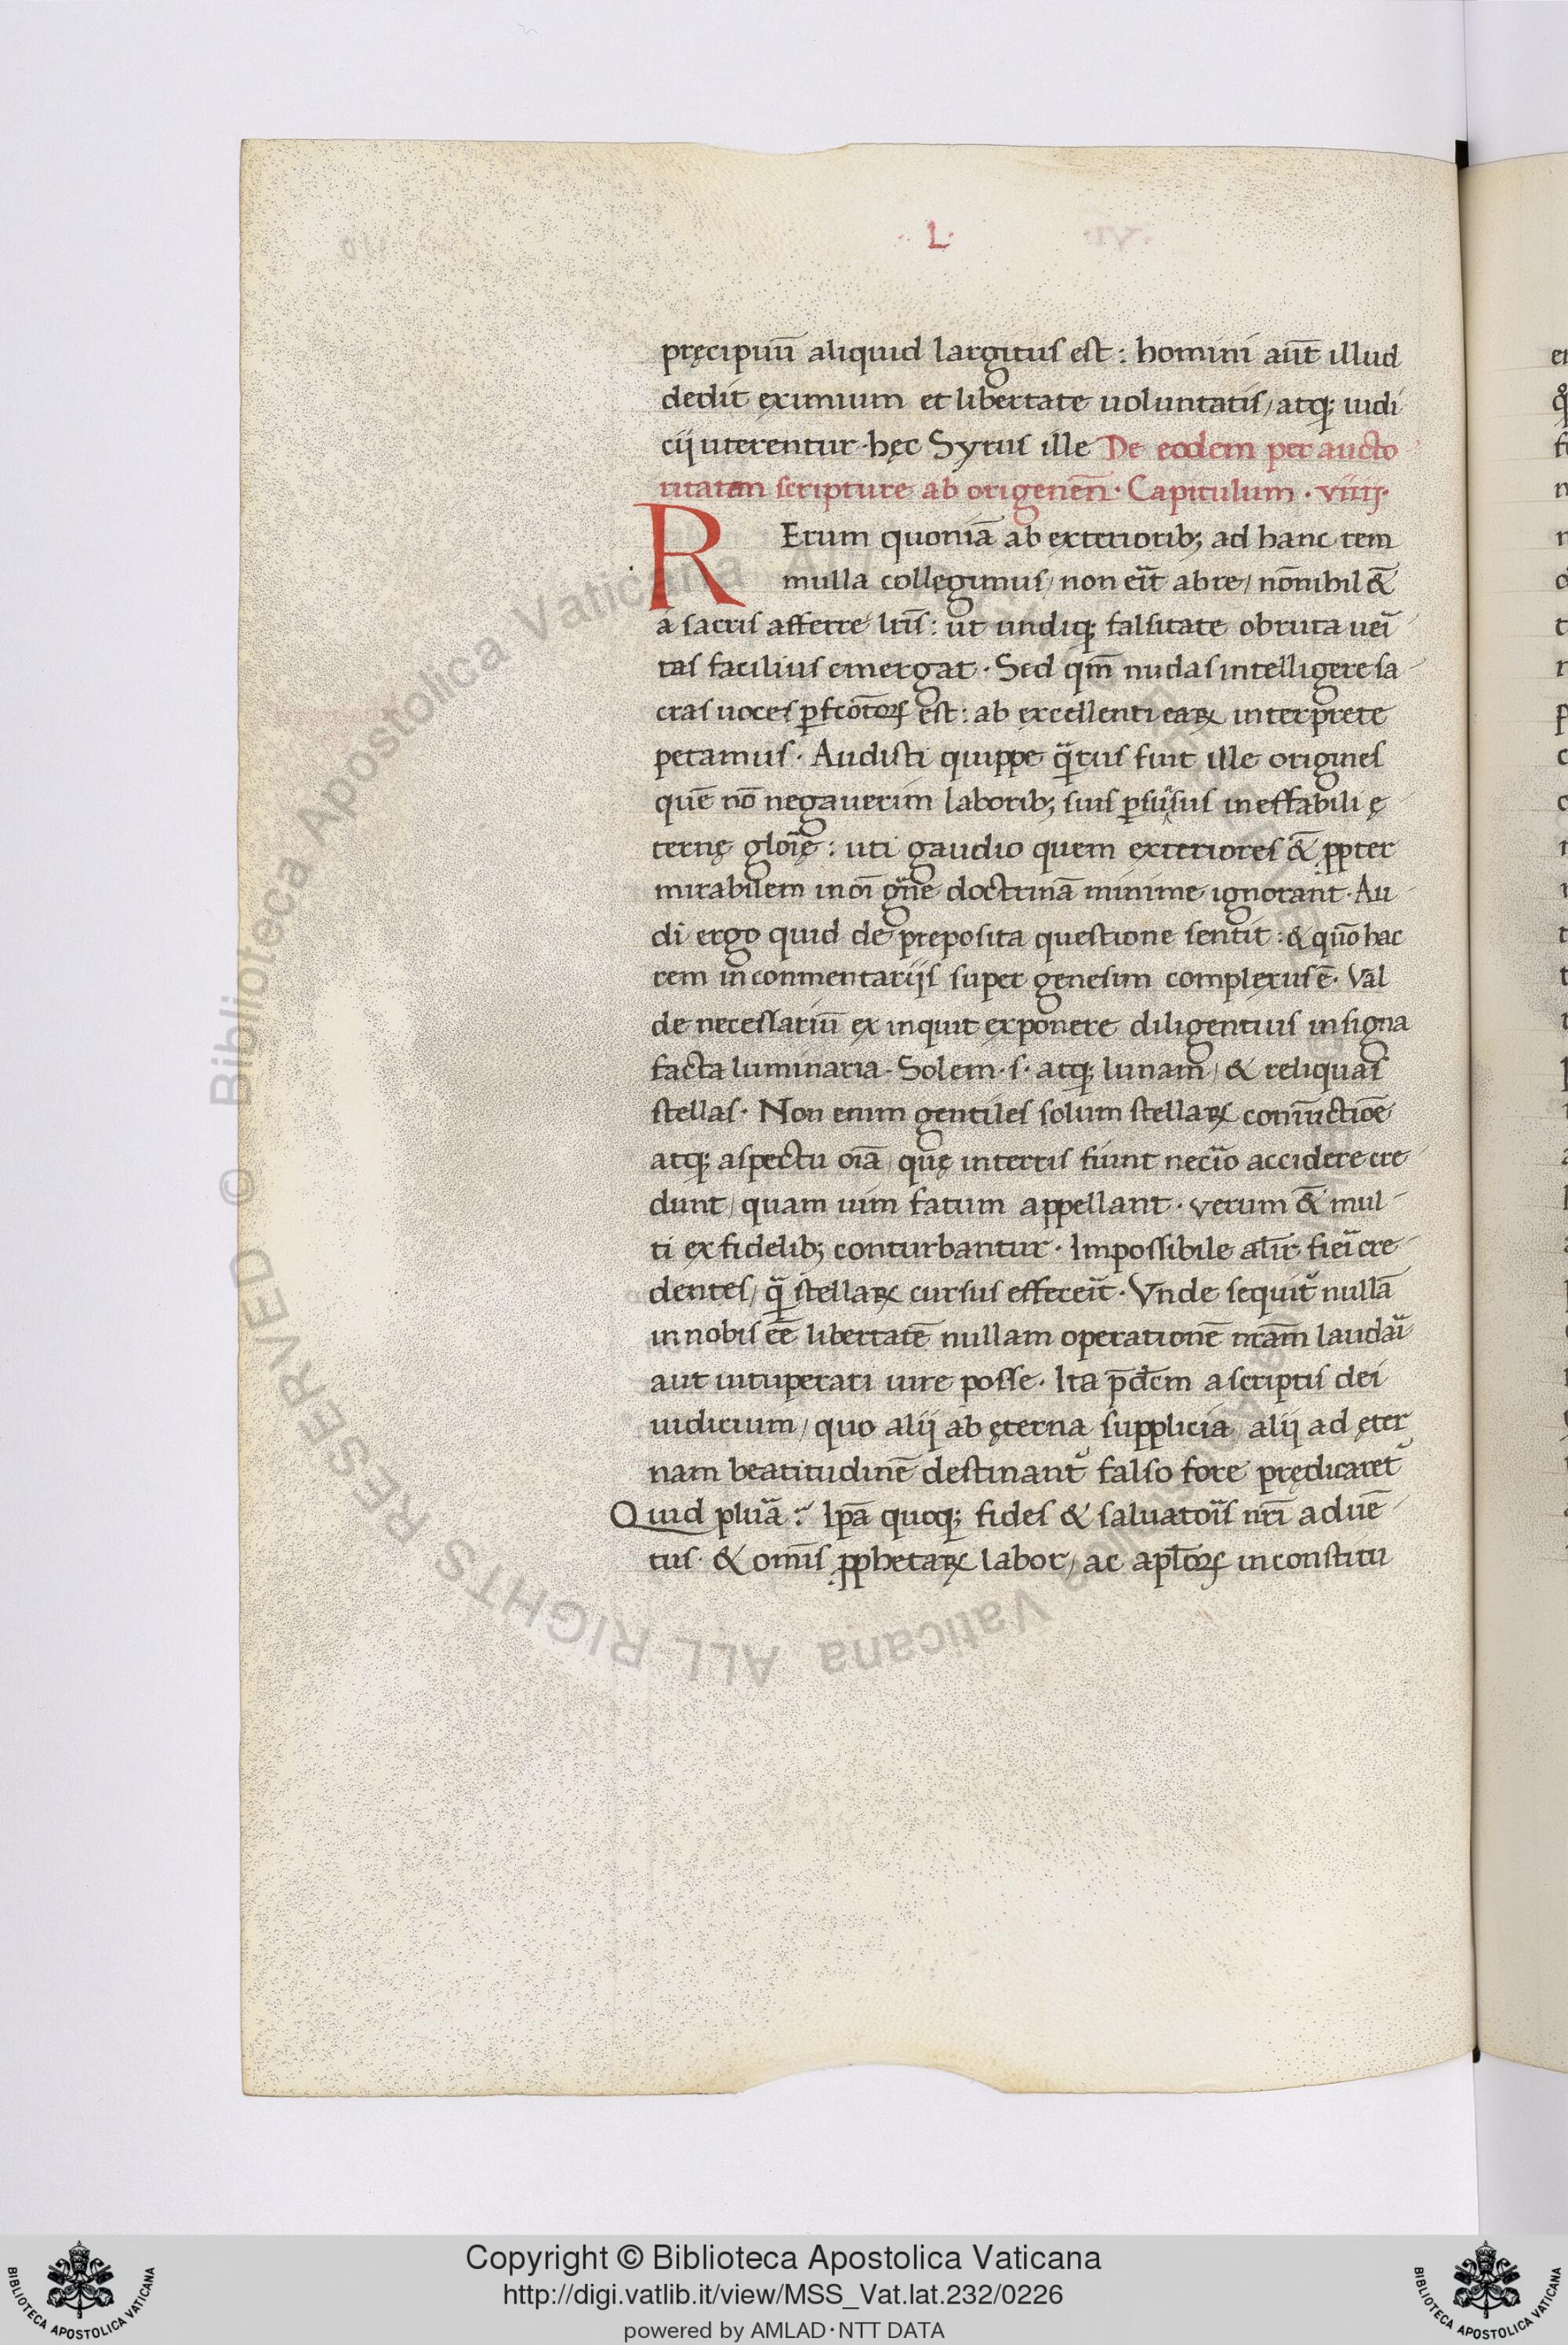 L.
pręcipuū aliquid largitus est: homini aūt illud
dedit eximium et libertate uoluntatis/ atq; iudi
cij uterentur. hęc Syrus ille De eodem per aucto
ritatem scripture ab origenen̄. Capitulum . viiij.
REtum quoniā ab exteriorib; ad hanc rem
mulla collegimus/ non eīt ab re/ nōnihil &̄
a sacris afferre lrīs: ut undiq; falsitate obruta uei
tas facilius emergat. Sed qm̄ nudas intelligere sa
cras uoces est: ab excellenti eaꝝ interprete
petamus. Audisti quippe q̄tus fuit ille origines
quē nō negauerim laborib; suis ineffabili ę
ternę gloīę: uti gaudio quem exteriores &̄ ꝓpter
mirabilem in oī gn̄e doctrinā minime ignorant. Au
di ergo quid de preposita questione sentit: & quō hac
rem in conmentarijs super genesim complexus ē. Val
de necessariū ex inquit exponere diligentius in signa
facta luminaria. Solem .s. atq; lunam/ & reliquas
stellas. Non enim gentiles solum stellaꝝ coniūctiōe
atq; aspectu oīā/ quę in terris fiunt necīo accidere cre
dunt/ quam uim fatum appellant. verum &̄ mul
ti ex fidelib; conturbantur. Impossibile alīr fiei cre
dentes/ q̄ stellaꝝ cursus effeceīt. Vnde sequit᷑ nullā
in nobis eē libertatē nullam operationē nrām laudai
aut uituperari iure posse. Ita p̄dc̄m a scriptis dei
iudicium/ quo alij ab ęterna supplicia alij ad ęter
nam beatitudinē destinant᷑ falso fore prędicaret᷑
Quid pluā? Ipā quoq; fides & saluatoīs nr̄i aduē
tus. & omīs ꝓphetaꝝ labor/ ac apl̄oꝝ inconstitu
Copyright © Biblioteca Apostolica Vaticana
http://digi.vatlib.it/view/MSS_Vat.lat.232/0226
powered by AMLAD·NTT DATA
BIBLIOTECA APOSTOLICA VATICANA
BIBLIOTECA APOSTOLICA VATICANA